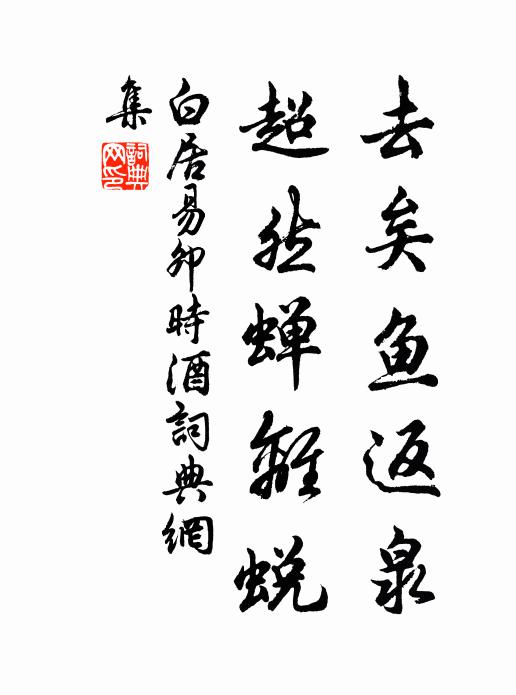 去矣鱼返泉
超然蝉離蜕
白居易卯時酒詞典網
集
詞典
网印